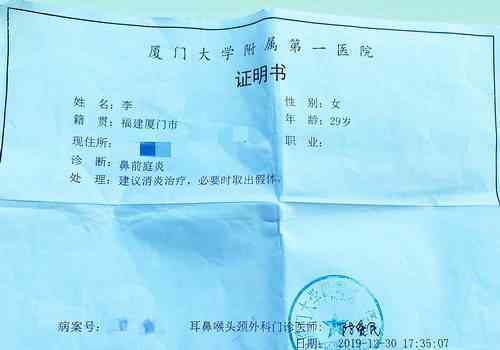 厦门大学附属第一医院
证明书
姓 名：李 性 别：女
籍 贯：福建厦门市 年 龄：29岁
现住所： 职 业：
诊 断：鼻前庭炎
处 理：建议消炎治疗，必要时取出假体。
病案号： 耳鼻喉头颈外科门诊医师：
日期： 2019-12-30 17:35:07